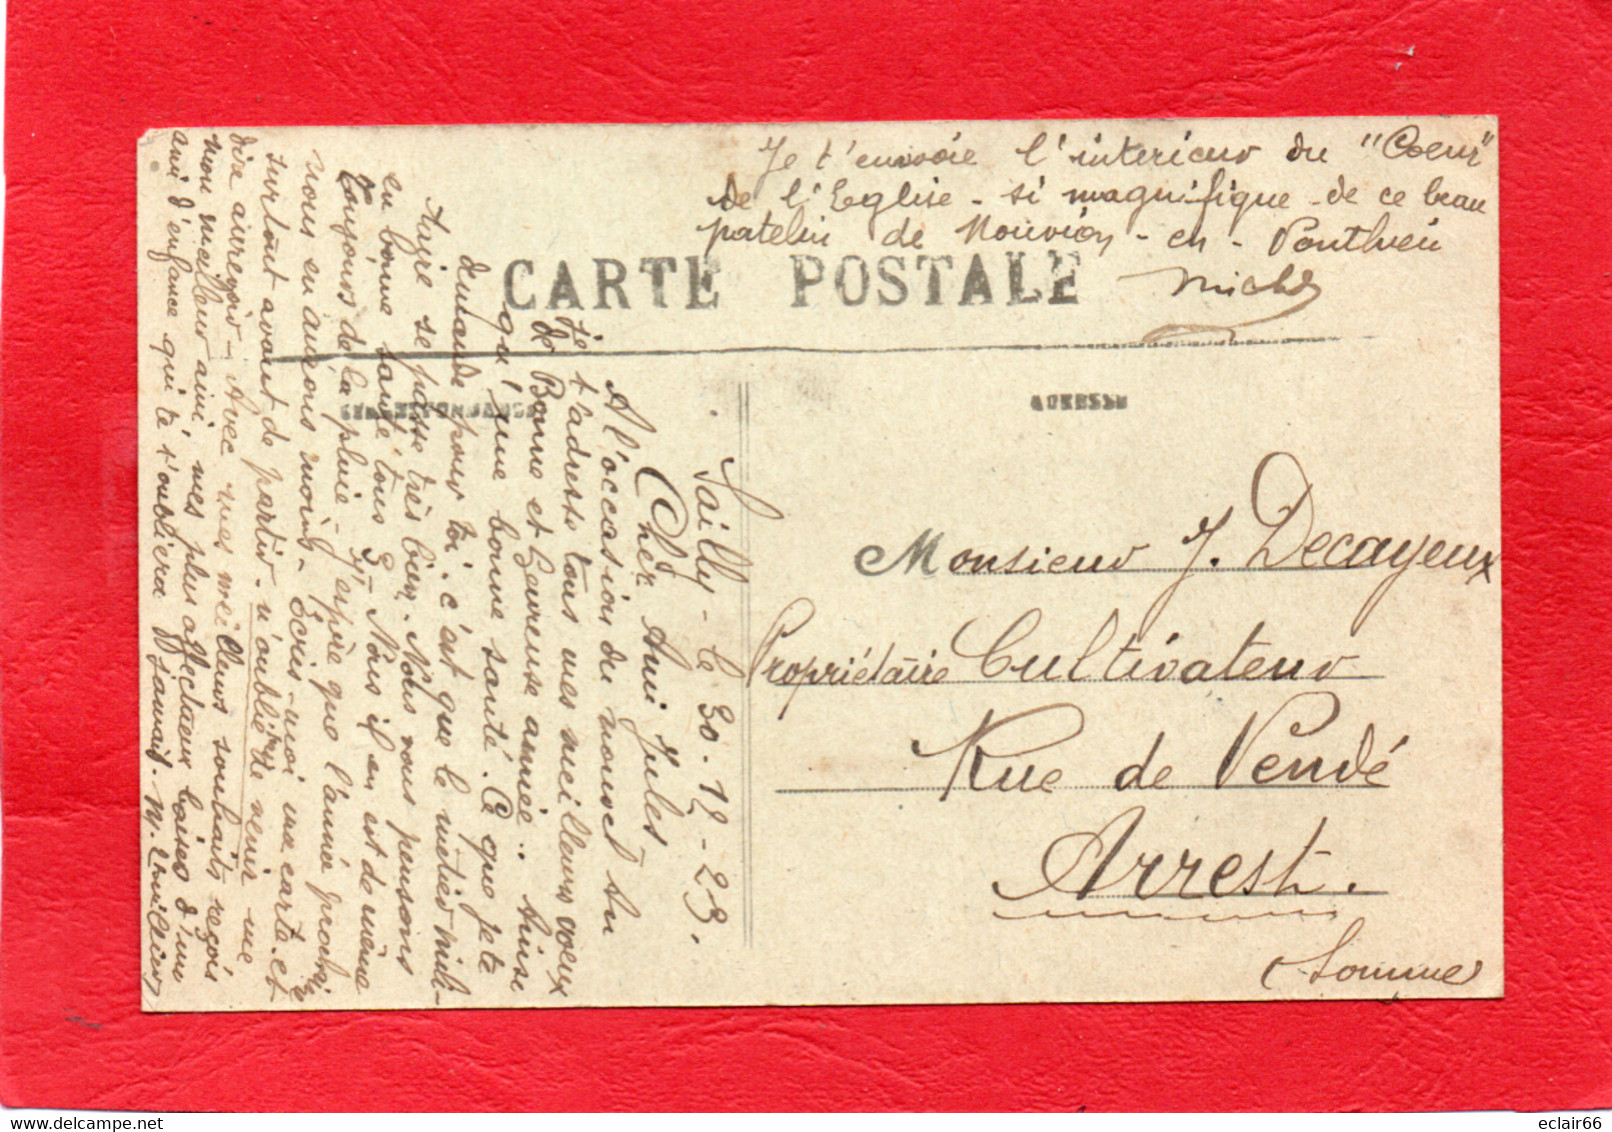 Je t'envoie l'interieur du "Coeur"
de l'Eglise - si magnifique - de ce beau
patelin de Nouvion - en - Ponthieu
Michel
CARTE POSTALE
CORRESPONDANCE
ADRESSE
Sailly - le 30.12-23.
Cher Ami Jules
A l'occasion du nouvel an
je t'adresse tous mes meilleurs voeux
de Bonne et heureuse année.. Ainsi
qu'une bonne santé. Ce que je te
demande pour toi. c'est que le métier mili-
taire se passe très bien. Nous vous pensons
en bonne santé tous 3 - Nous il en est de même
Toujours de la pluie - J'espère que l'année prochaine
nous en aurons moins. Ecris-moi une carte. et
surtout avant de partir. n'oublie de venir me
dire aurevoir - Avec mes meilleurs souhaits reçois
mon meilleur ami, mes plus affectueux baises d'un
ami d'enfance qui ne t'oubliera jamais. M.
Monsieur J. Decayeux
Propriétaire Cultivateur
Rue de Vendé
Arrest.
(Somme)
delcampe.net
eclair66